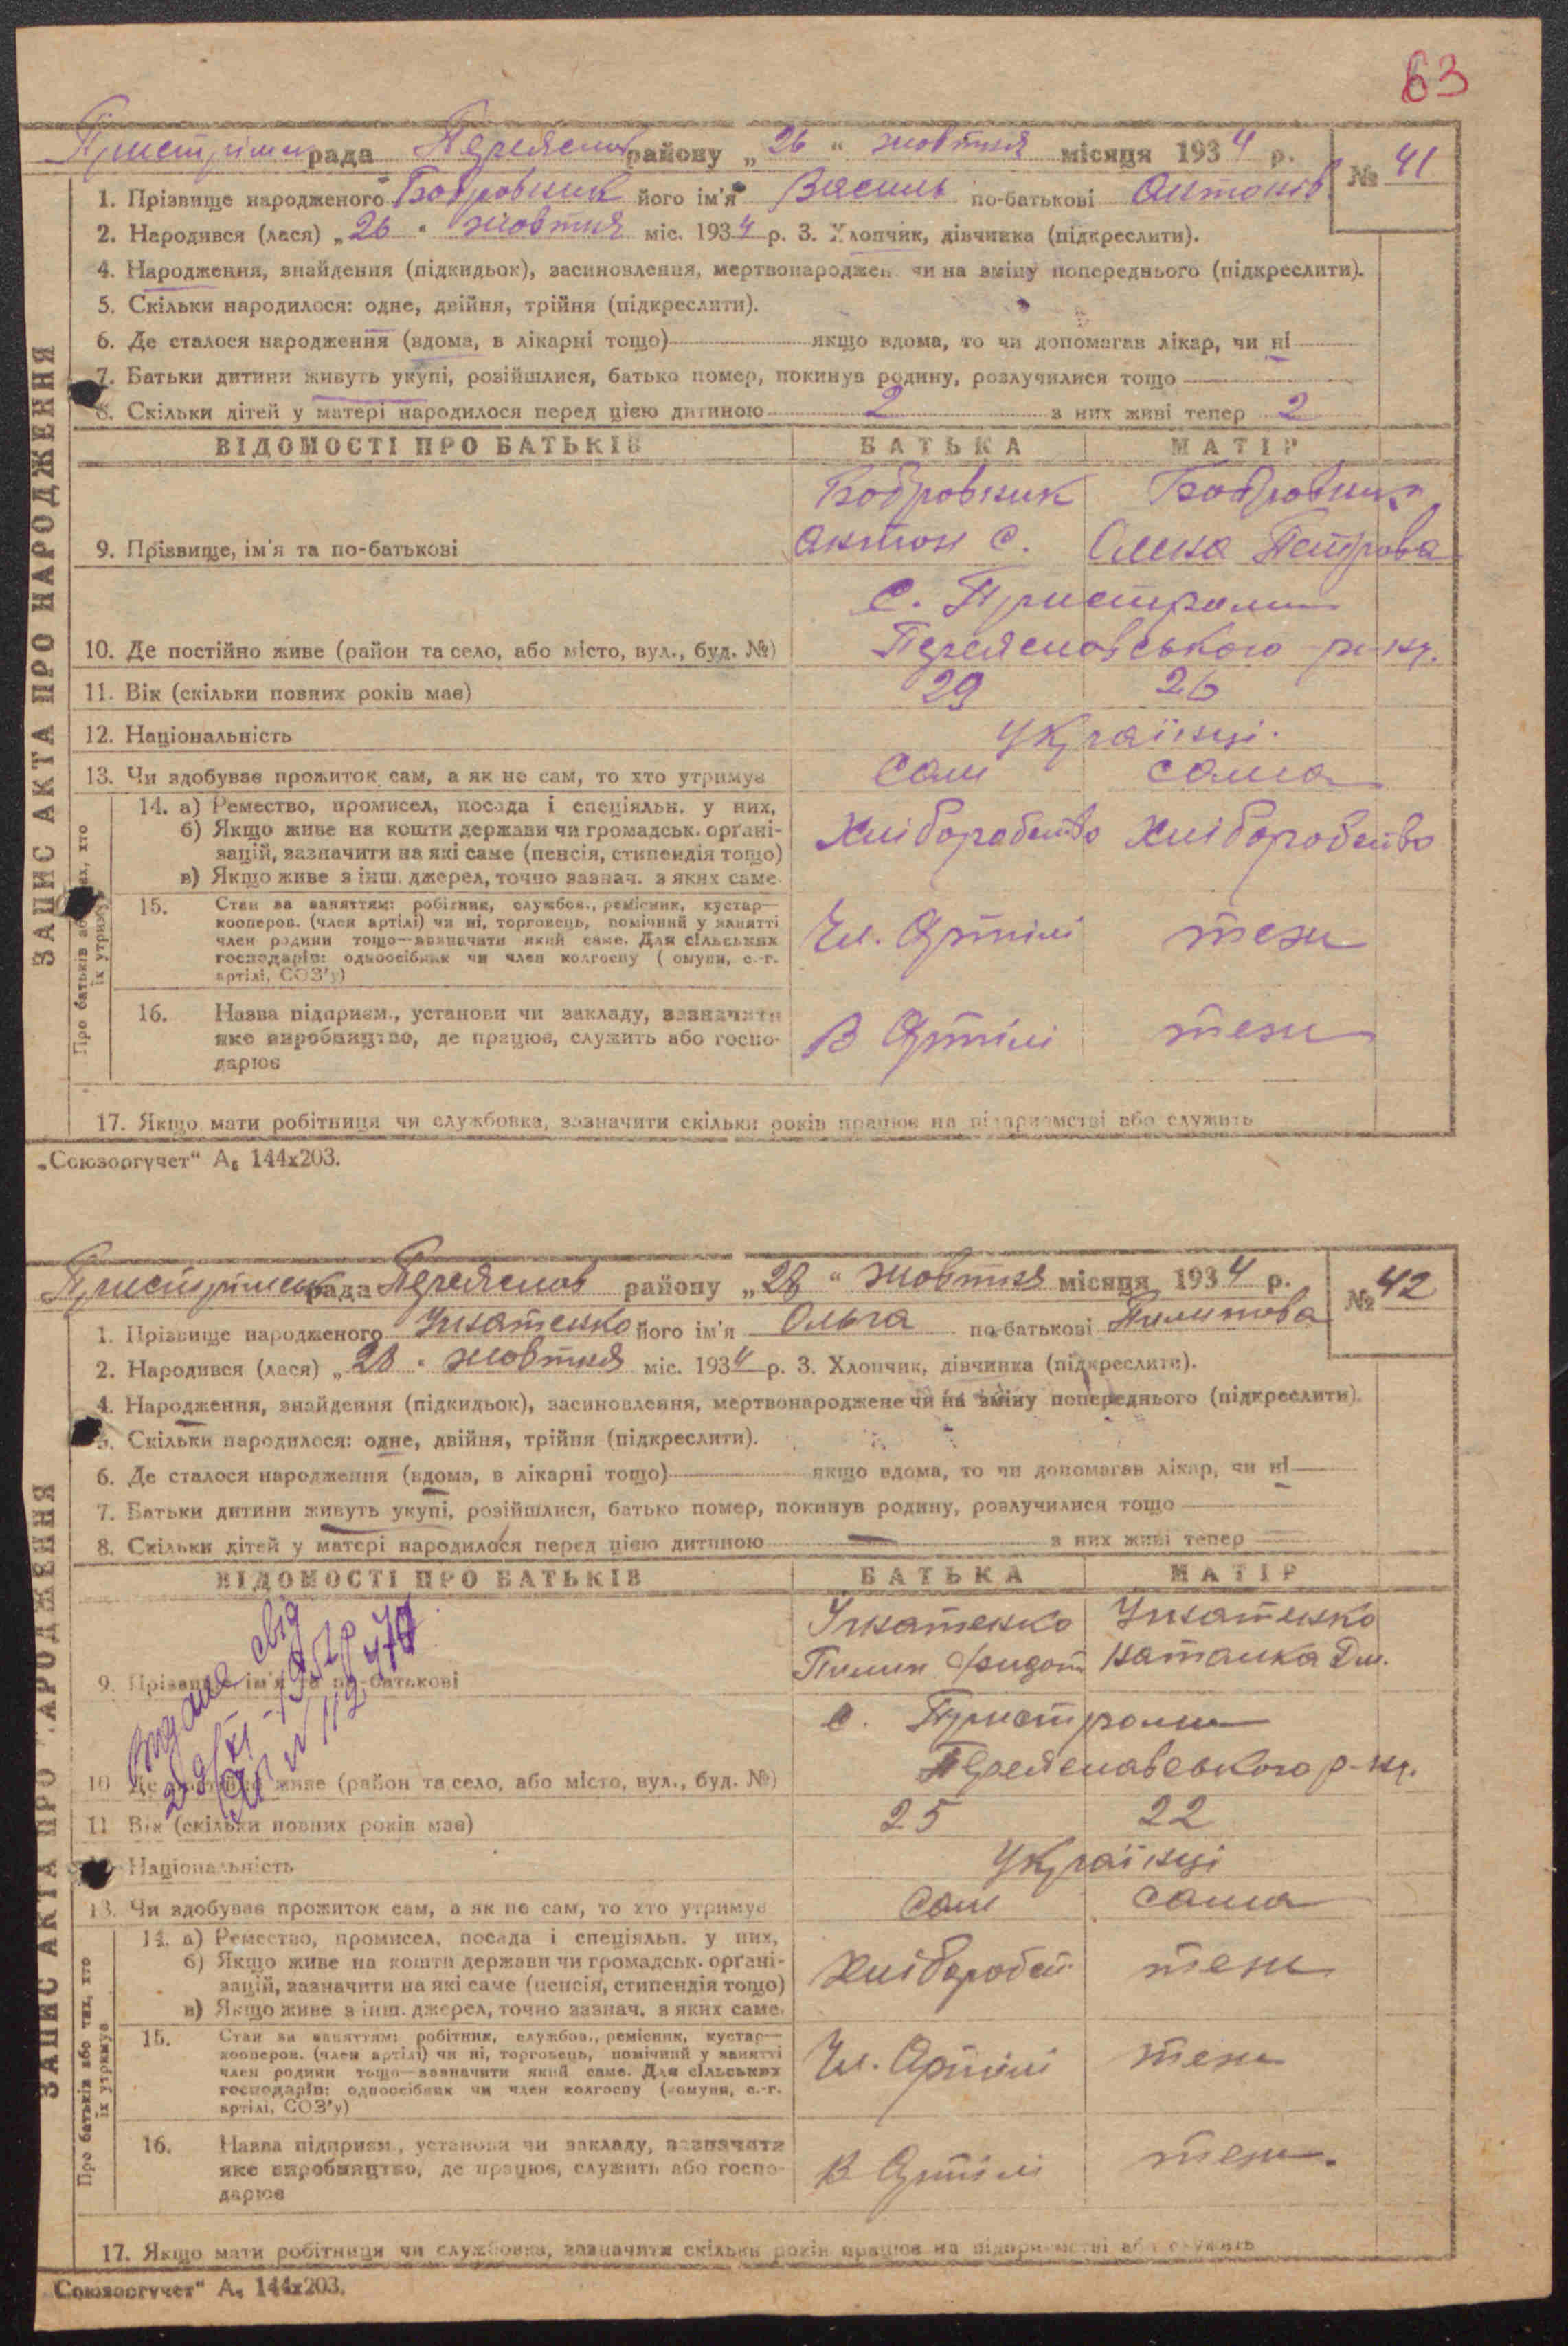 63
рада Переяслов району „26“ жовтня місяця 1934 р.
№ 41
1. Прізвище народженого Бобровник його ім'я Василь по-батькові Антонів
2. Народився (лася) „26“ жовтня міс. 1934 р. 3. Хлопчик, дівчинка (підкреслити).
4. Народження, знайдення (підкидьок), засиновлення, мертвонароджен чи на зміну попереднього (підкреслити).
5. Скільки народилося: одне, двійня, трійня (підкреслити).
6. Де сталося народження (вдома, в лікарні тощо) якщо вдома, то чи допомагав лікар, чи ні
7. Батьки дитини живуть укупі, розійшлися, батько помер, покинув родину, розлучилися тощо
8. Скільки дітей у матері народилося перед цією дитиною 2 з них живі тепер 2
ВІДОМОСТІ ПРО БАТЬКІВ БАТЬКА МАТІР
Бобровник Бобровник
9. Прізвище, ім'я та по-батькові Антон С. Олена Петрова
с. Пристроми
10. Де постійно живе (район та село, або місто, вул., буд. №) Переясловського р-ну.
11. Вік (скільки повних років має) 29 26
12. Національність Українці.
13. Чи здобуває прожиток сам, а як не сам, то хто утримує Сам сама
14. а) Ремество, промисел, посада і спеціяльн. у них,
б) Якщо живе на кошти держави чи громадськ. органі-
зацій, зазначити на які саме (пенсія, стипендія тощо)
Хліборобство Хліборобство
в) Якщо живе з інш. джерел, точно зазнач. з яких саме
15. Стан за заняттям: робітник, службов., ремісник, кустар—
кооперов. (член артілі) чи ні, торговець, помічний у занятті
член родини тощо—зазначити який саме. Для сільських
господарів: одноосібник чи член колгоспу ( омуни, с.-г.
артілі, СОЗ'у)
Чл. Артілі теж
16. Назва підприєм., установи чи закладу, зазначити
яке виробництво, де працює, служить або госпо-
дарює
В Артілі теж
17. Якщо мати робітниця чи службовка, зазначити скільки років працює на підприємстві або служить
ЗАПИС АКТА ПРО НАРОДЖЕННЯ
Про батьків або тих, хто
їх утримує
„Союзоргучет“ А₆ 144х203.
рада Переяслов району „28“ жовтня місяця 1934 р.
№ 42
1. Прізвище народженого Гнатенко його ім'я Ольга по-батькові Пилипова
2. Народився (лася) „28“ жовтня міс. 1934 р. 3. Хлопчик, дівчинка (підкреслити).
4. Народження, знайдення (підкидьок), засиновлення, мертвонароджене чи на зміну попереднього (підкреслити).
5. Скільки народилося: одне, двійня, трійня (підкреслити).
6. Де сталося народження (вдома, в лікарні тощо) якщо вдома, то чи допомагав лікар, чи ні
7. Батьки дитини живуть укупі, розійшлися, батько помер, покинув родину, розлучилися тощо
8. Скільки дітей у матері народилося перед цією дитиною — з них живі тепер —
ВІДОМОСТІ ПРО БАТЬКІВ БАТЬКА МАТІР
Гнатенко Гнатенко
9. Прізвище, ім'я та по-батькові Пилип Федот Наталка Дм.
с. Пристроми
10. Де постійно живе (район та село, або місто, вул., буд. №) Переяславського р-ну.
11. Вік (скільки повних років має) 25 22
Національність Українці
13. Чи здобуває прожиток сам, а як не сам, то хто утримує Сам сама
14. а) Ремество, промисел, посада і спеціяльн. у них,
б) Якщо живе на кошти держави чи громадськ. органі-
зацій, зазначити на які саме (пенсія, стипендія тощо)
Хлібороб теж
в) Якщо живе з інш. джерел, точно зазнач. з яких саме.
15. Стан за заняттям: робітник, службов., ремісник, кустар—
кооперов. (член артілі) чи ні, торговець, помічний у занятті
член родини тощо—зазначити який саме. Для сільських
господарів: одноосібник чи член колгоспу (комуни, с.-г.
артілі, СОЗ'у)
Чл. Артілі теж
16. Назва підприєм., установи чи закладу, зазначити
яке виробництво, де працює, служить або госпо-
дарює
В Артілі теж.
17. Якщо мати робітниця чи службовка, зазначити скільки років працює на підприємстві або служить
ЗАПИС АКТА ПРО НАРОДЖЕННЯ
Про батьків або тих, хто
їх утримує
Союзоргучет“ А₆ 144х203.